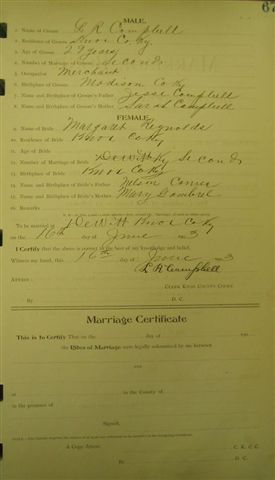 MALE.
1. Name of Groom L R Campbell
2. Residence of Groom Knox Co Ky
3. Age of Groom 29 years
4. Number of Marriage of Groom Second
5. Occupation Merchant
6. Birthplace of Groom Madison Co Ky
7. Name and Birthplace of Groom's Father Jesse Campbell
8. Name and Birthplace of Groom's Mother Sarah Campbell
FEMALE.
9. Name of Bride Margaret Reynolds
10. Residence of Bride Knox Co Ky
11. Age of Bride
12. Number of Marriage of Bride Dewitt Ky Second
13. Birthplace of Bride Knox Co Ky
14. Name and Birthplace of Bride's Father
15. Name and Birthplace of Bride's Mother Mary
16. Remarks
To be married at Dewitt Knox Co Ky
on the 16th day of June 3
I Certify that the above is correct to the best of my knowledge and belief.
Witness my hand, this 16th day of June 3
L R Campbell
Attest:
Clerk Knox County Court
By D. C.
Marriage Certificate
This is to Certify That on the day of
the Rites of Marriage were legally solemnized by me between
and
at in the County of
in the presence of
Signed,
A Copy Attest: C. K. C. C.
By D. C.